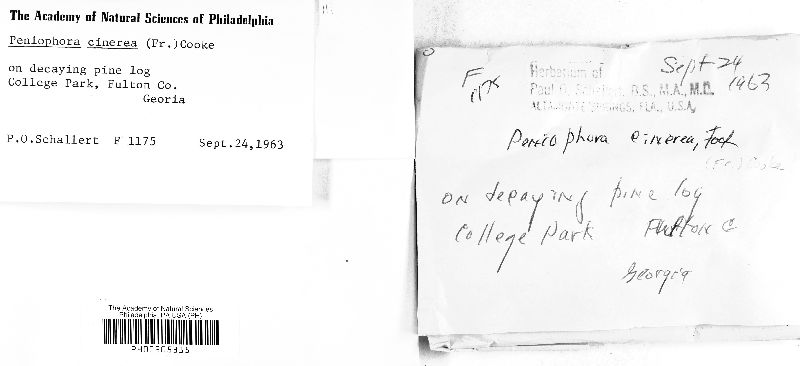 The Academy of Natural Sciences of Philadelphia
Peniophora cinerea (Fr.)Cooke
on decaying pine log
College Park, Fulton Co.
Georia
P.O.Schallert F 1175 Sept.24,1963
The Academy of Natural Sciences
Philadelphia, PA USA (PH)
Sept 24
1963
Herbarium of
Paul O. Schallert, B.S., M.A., M.D.
ALTAMONTE SPRINGS, FLA., U.S.A.
Peniophora cinerea,
on decaying pine log
College Park Fulton C
Georgia